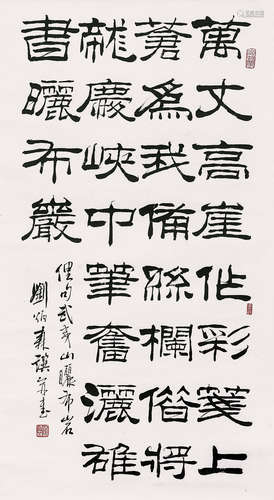 萬丈高崖作彩箋上
蒼為我備絲欄借將
龍慶峽中筆奮灑雄
書曬布巖
俚句武夷山曬布岩
劉炳森撰并書